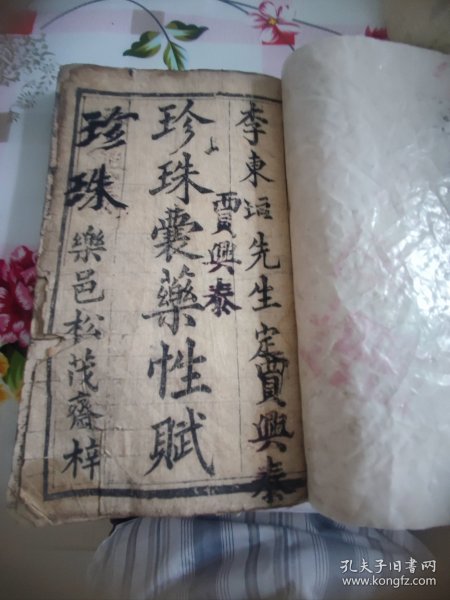 李東垣先生定賈興泰
賈興泰
珍珠囊藥性賦
珍珠樂邑松茂齋梓
孔夫子旧书网
www.kongfz.com